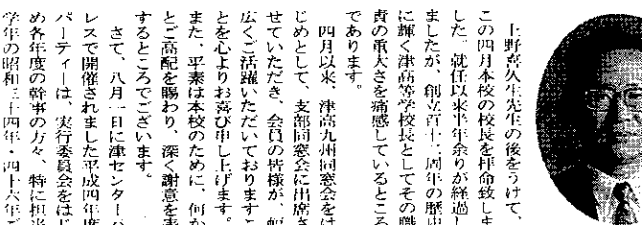 上野喜久生先生の後をうけて、
この四月本校の校長を拝命致しま
した。就任以来半年余りが経過し
ましたが、創立百十二周年の歴史
に輝く津高等学校長としてその職
責の重大さを痛感しているところ
であります。
四月以来、津高九州同窓会をは
じめとして、支部同窓会に出席さ
せていただき、会員の皆様が、幅
広くご活躍いただいておりますこ
とを心よりお喜び申し上げます。
また、平素は本校のために、何か
とご高配を賜わり、深く謝意を表
するところでございます。
さて、八月一日に津センターパ
レスで開催されました平成四年度
パーティーは、実行委員会をはじ
め各年度の幹事の方々、特に担当
学年の昭和三十四年・四十六年ご